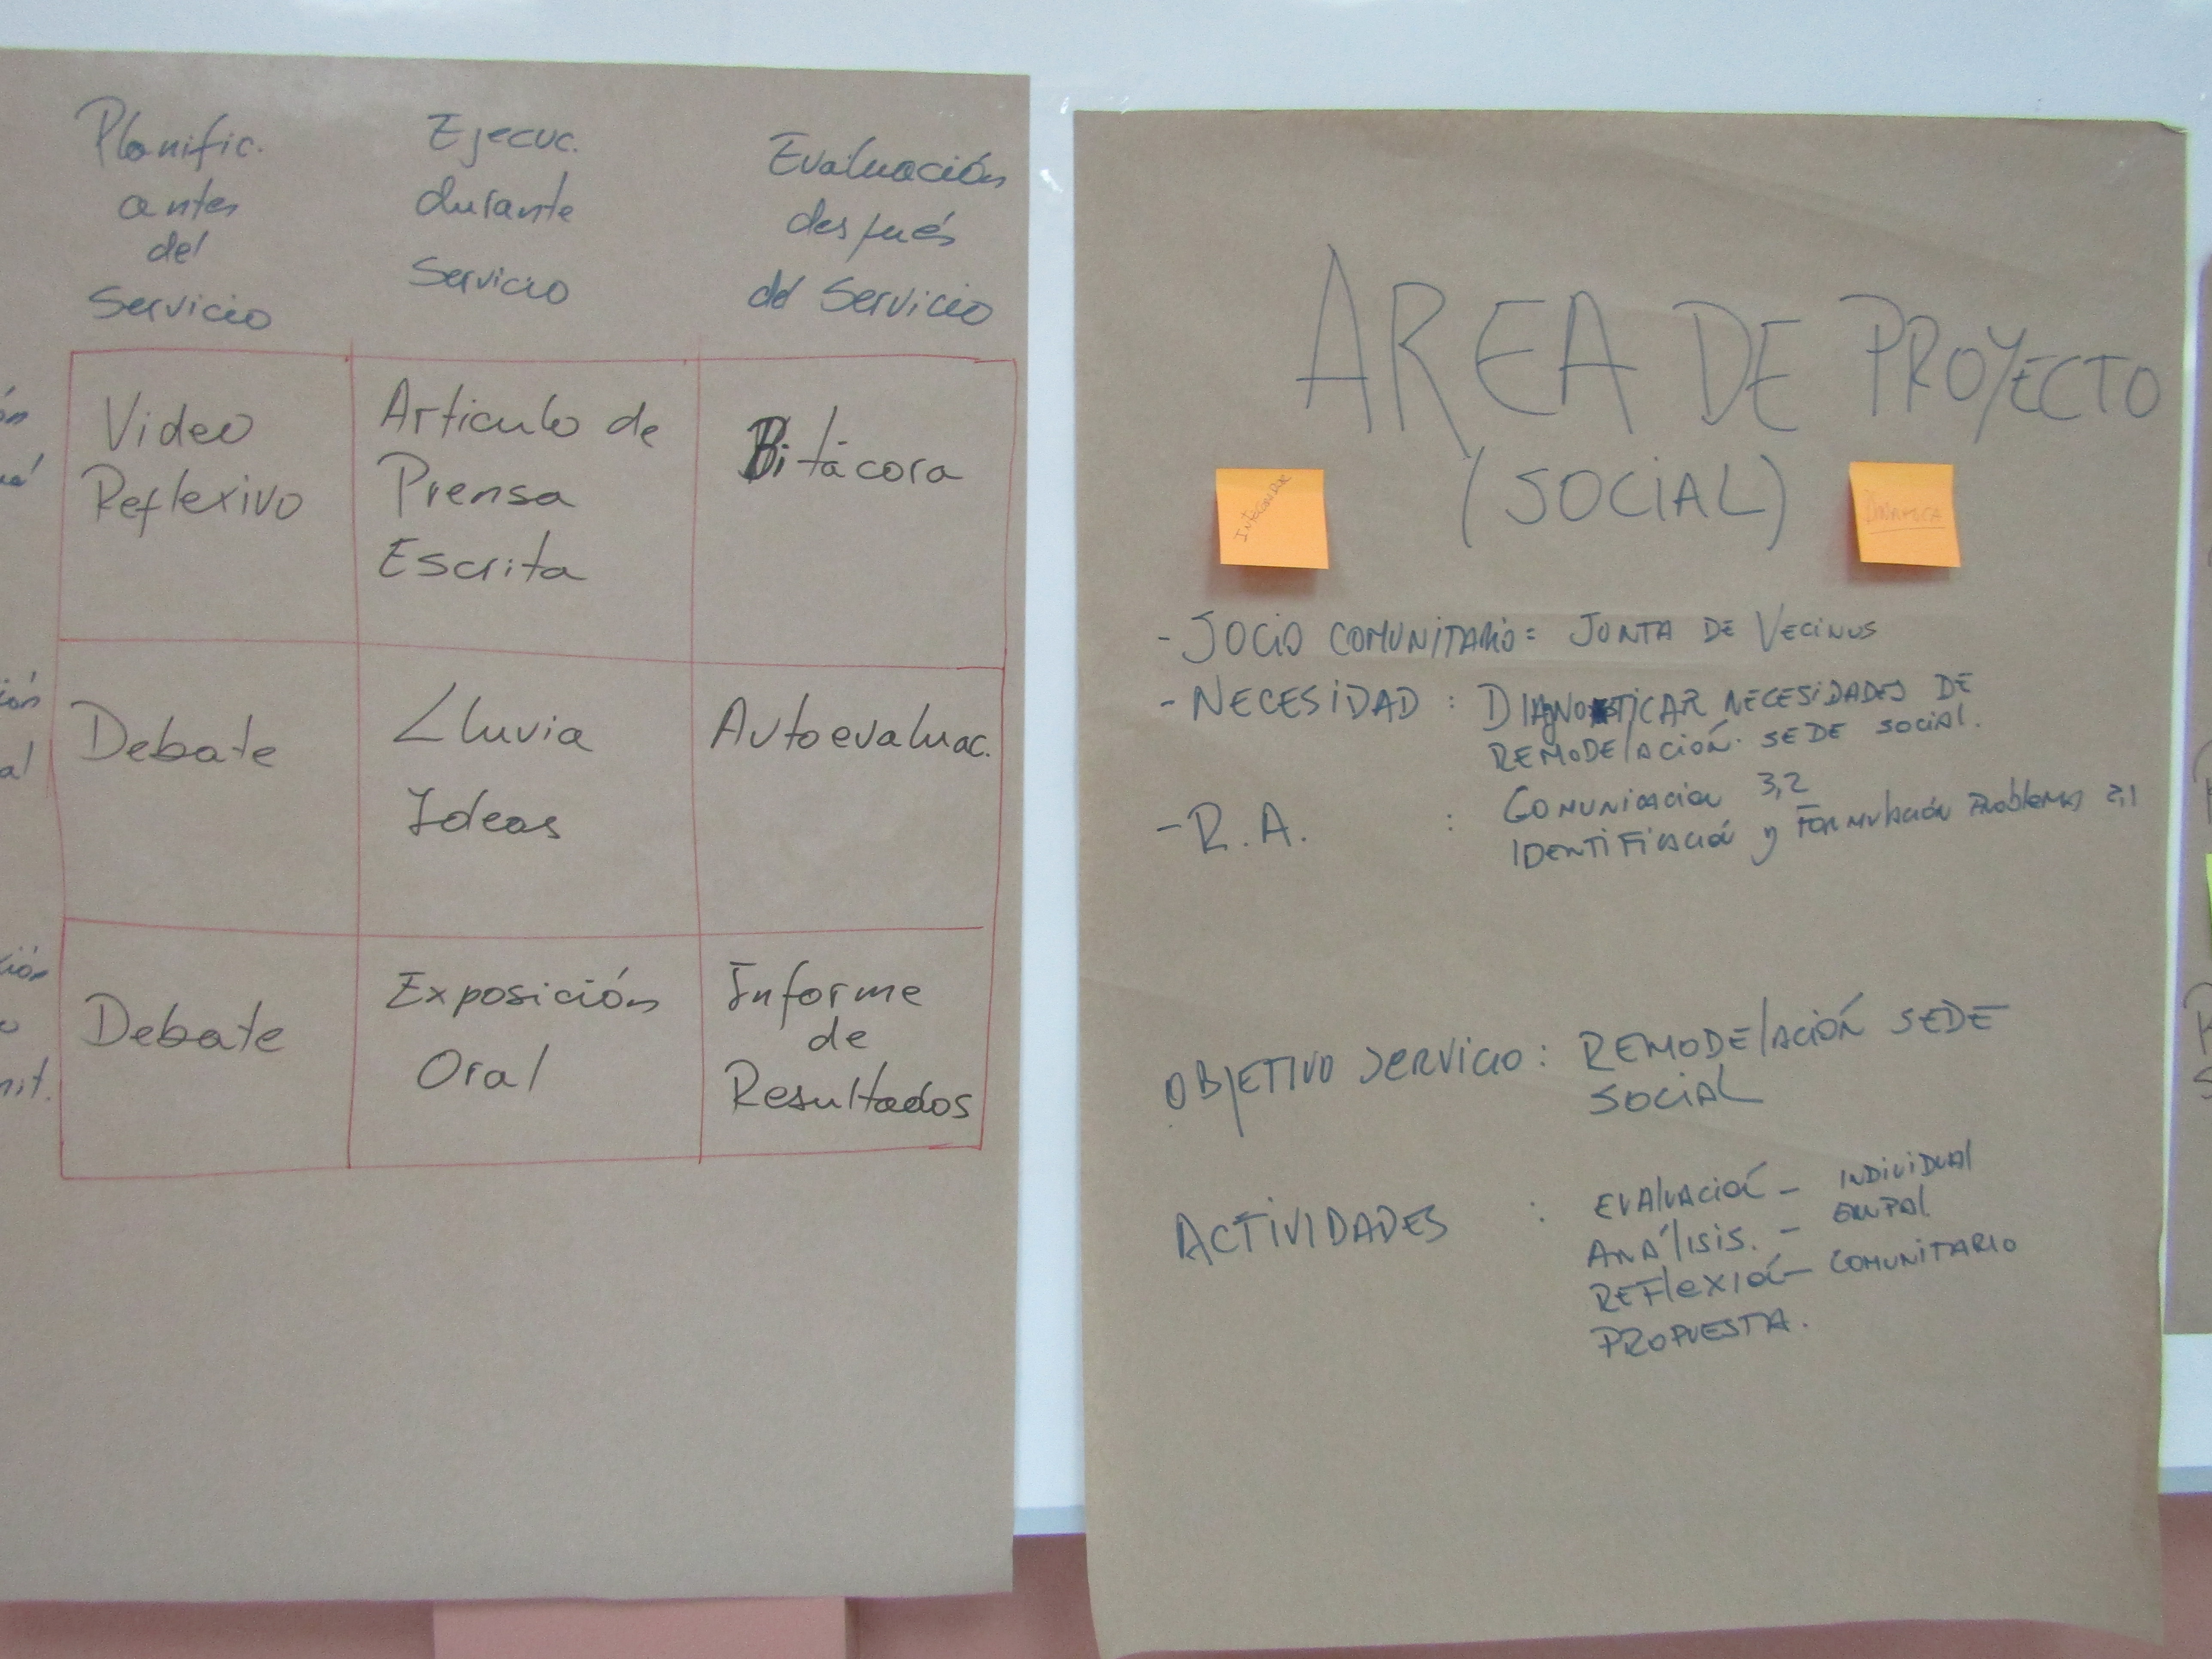 Planific.
antes
del
Servicio
Ejecuc.
durante
Servicio
Evaluación
después
del Servicio
Video
Reflexivo
Articulo de
Prensa
Escrita
Bitácora
Debate
Lluvia
Ideas
Autoevaluac.
Debate
Exposición
Oral
Informe
de
Resultados
AREA DE PROYECTO
(SOCIAL)
DINAMICA
- SOCIO COMUNITARIO: JUNTA DE VECINOS
- NECESIDAD : DIAGNOSTICAR NECESIDADES DE
REMODELACIÓN SEDE SOCIAL.
- R.A. : COMUNICACION 3,2
IDENTIFICACIÓN Y FORMULACIÓN PROBLEMAS 2,1
OBJETIVO SERVICIO : REMODELACIÓN SEDE
SOCIAL
ACTIVIDADES : EVALUACIÓN - INDIVIDUAL
ANÁLISIS. - GRUPAL
REFLEXIÓN - COMUNITARIO
PROPUESTA.